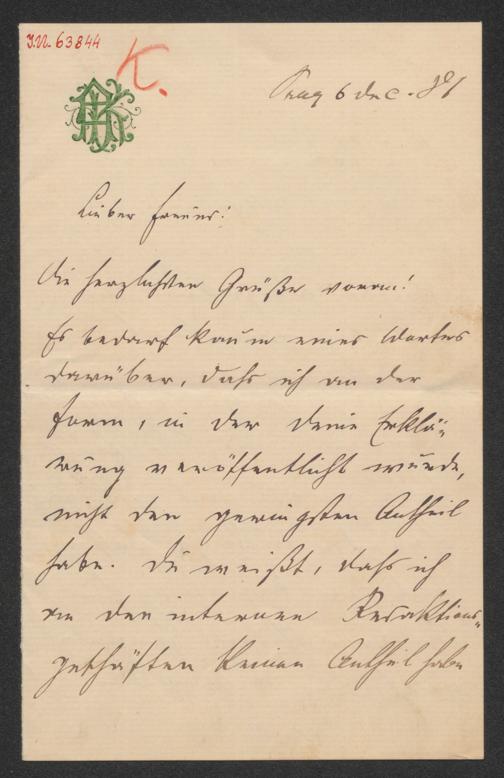 I.N. 63844
K.
Prag 6 Dec. 81
Lieber Freund!
Die herzlichsten Grüße voran!
Es bedarf kaum eines Wortes
darüber, daß ich an der
Form, in der deine Erklä-
rung veröffentlicht wurde,
nicht den geringsten Antheil
habe. Du weißt, daß ich
an den internen Redaktions-
geschäften keinen Antheil habe